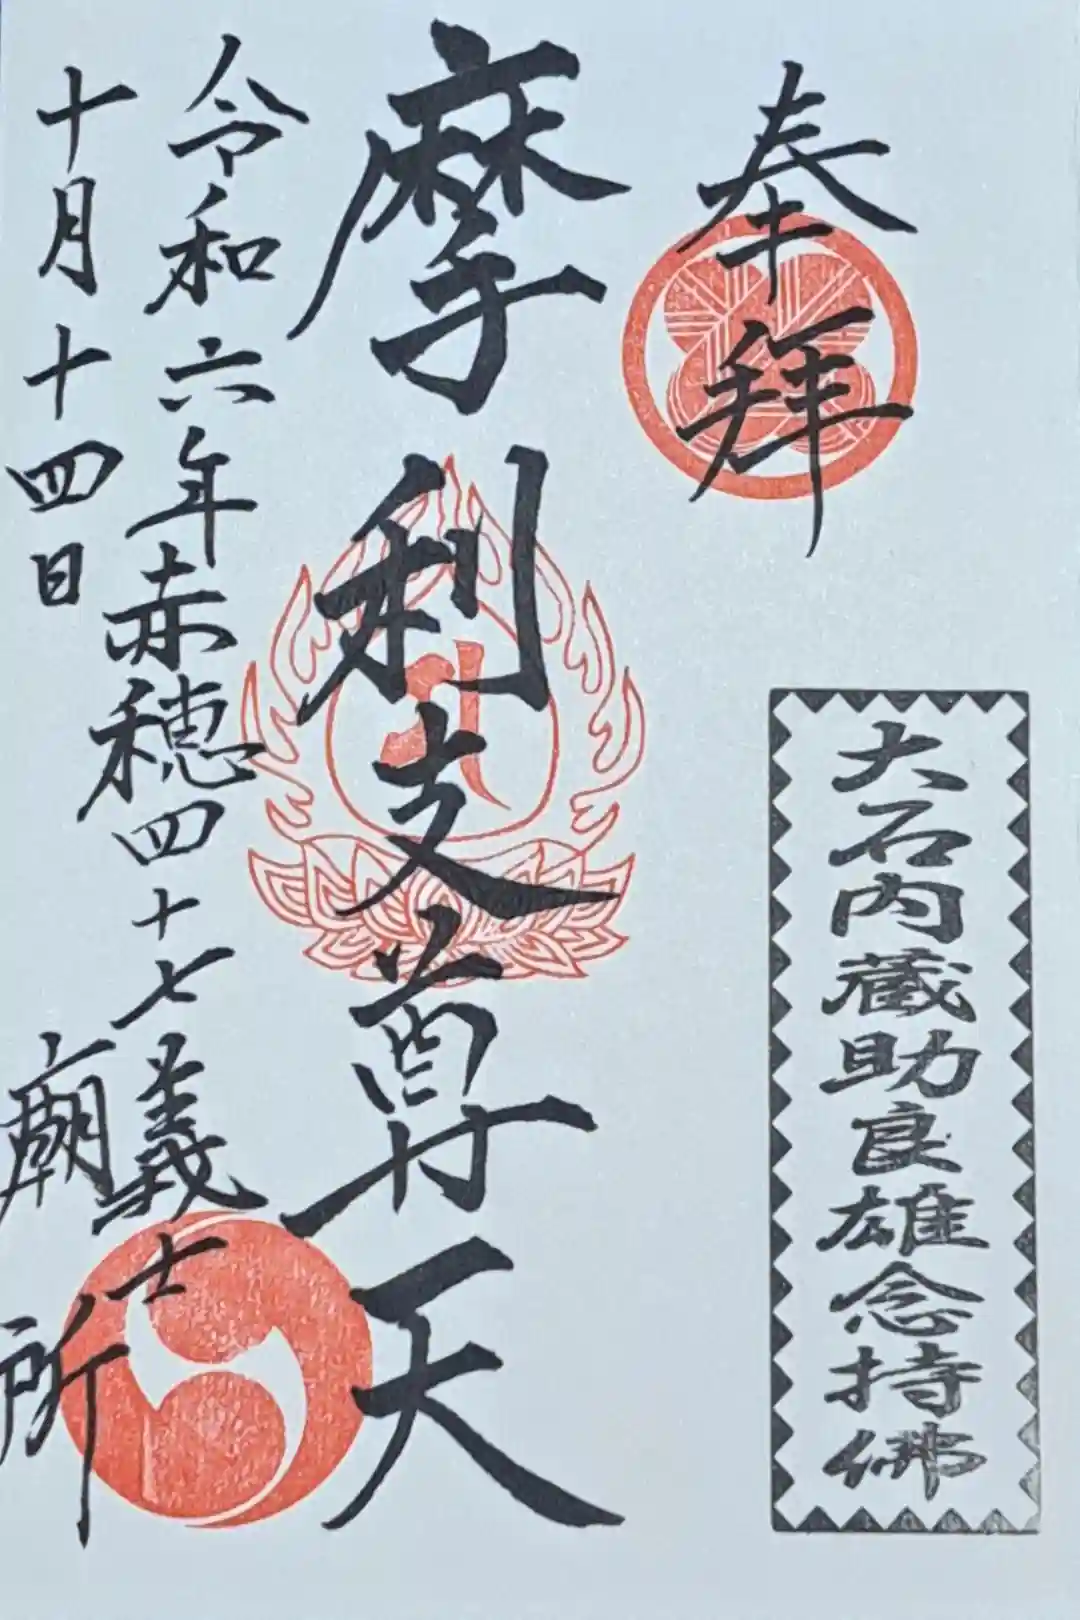 奉拝
大石内蔵助良雄念持佛
摩利支尊天
令和六年赤穂四十七義士
十月十四日
廟所